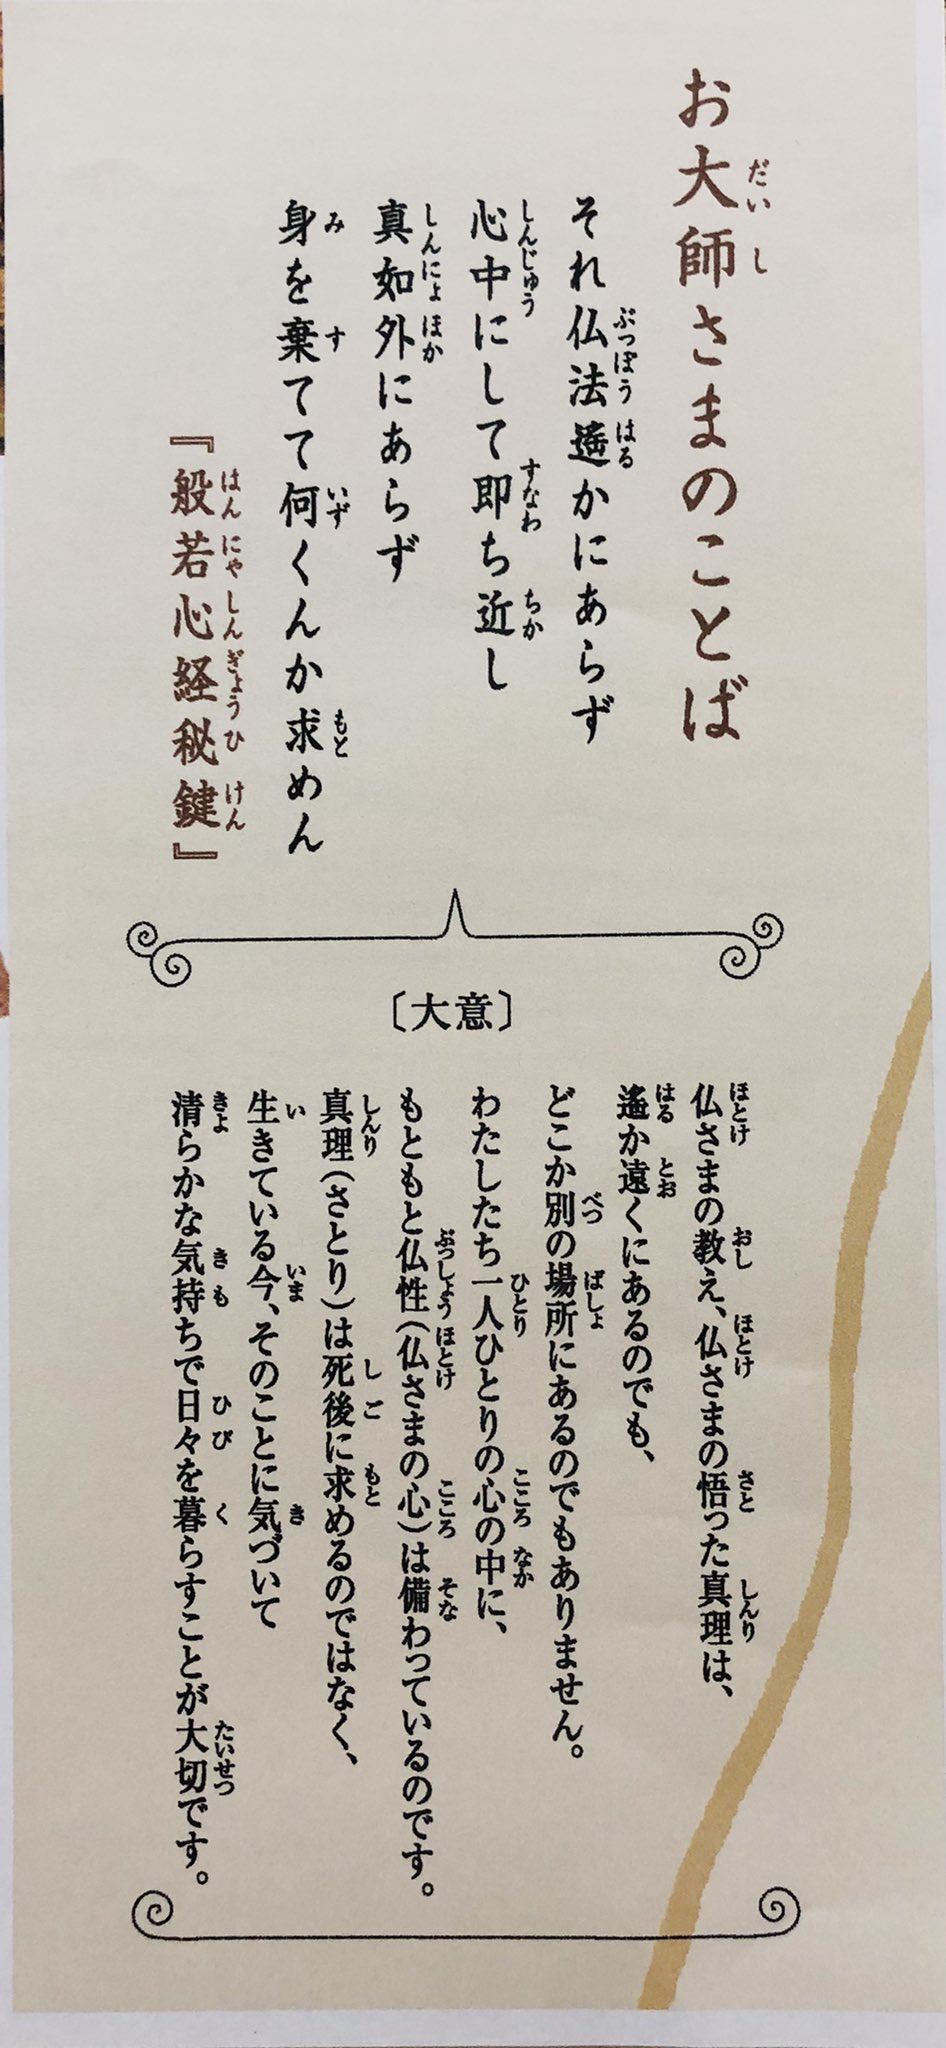 お大師さまのことば
それ仏法遙かにあらず
心中にして即ち近し
真如外にあらず
身を棄てて何くんか求めん
『般若心経秘鍵』
〔大意〕
仏さまの教え、仏さまの悟った真理は、
遙か遠くにあるのでも、
どこか別の場所にあるのでもありません。
わたしたち一人ひとりの心の中に、
もともと仏性（仏さまの心）は備わっているのです。
真理（さとり）は死後に求めるのではなく、
生きている今、そのことに気づいて
清らかな気持ちで日々を暮らすことが大切です。